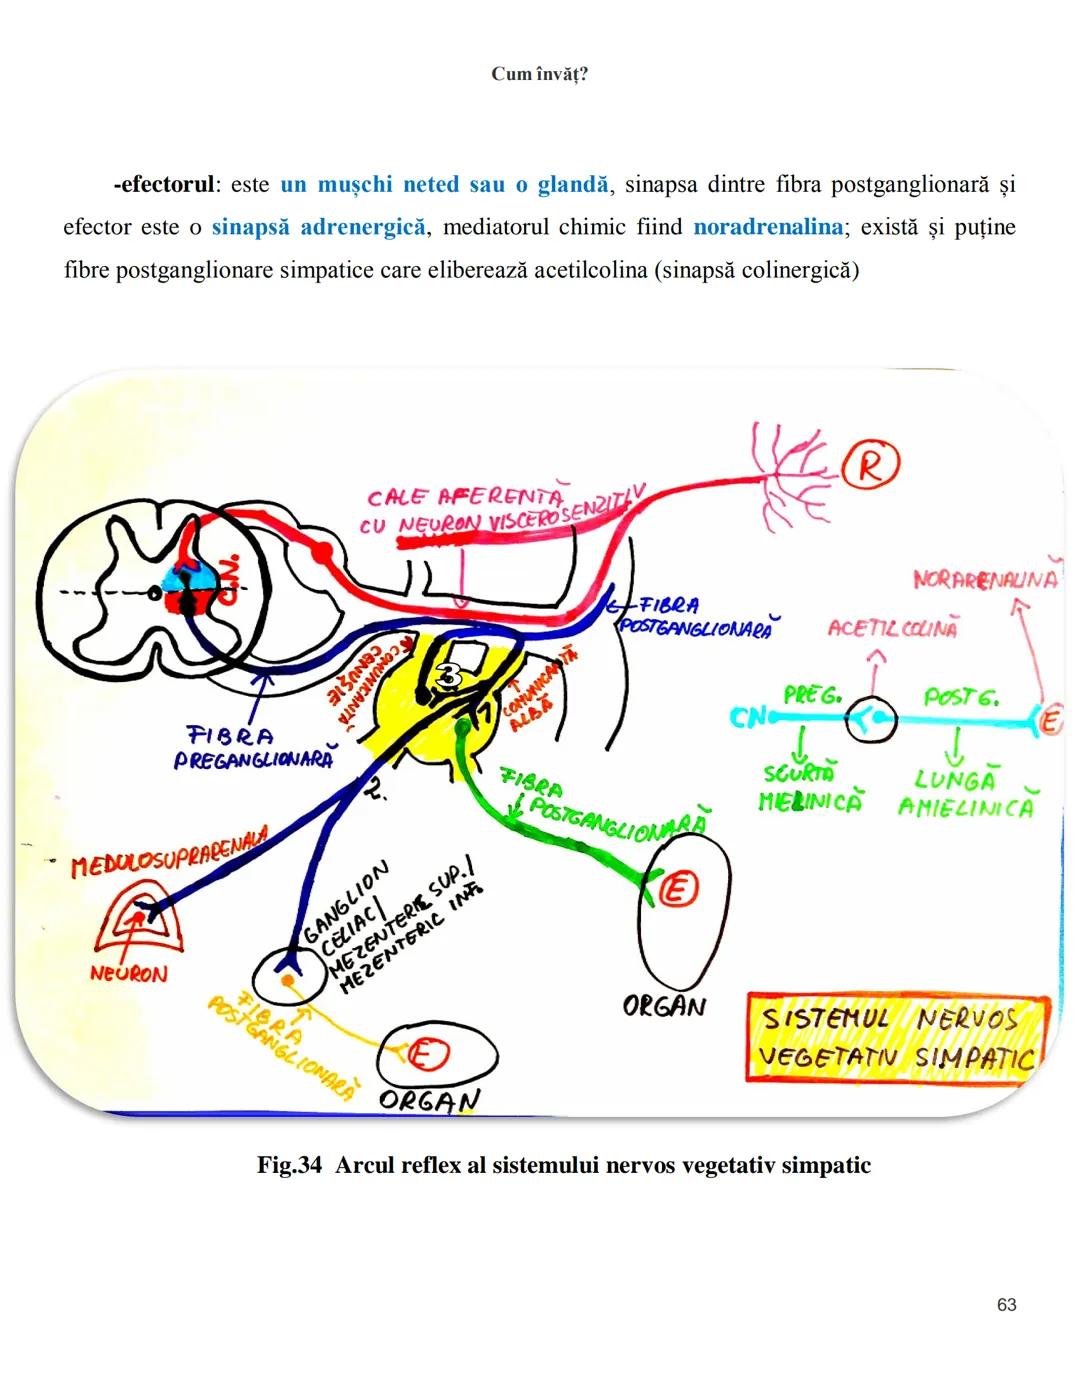 Cum învăț?
-efectorul: este un mușchi neted sau o glandă, sinapsa dintre fibra postganglionară și
efector este o sinapsă adrenergică, mediatorul chimic fiind noradrenalina; există și puține
fibre postganglionare simpatice care eliberează acetilcolina (sinapsă colinergică)
R
CALE AFERENTĂ
CU NEURON VISCEROSENZITIV
C.N.
NORARENALINĂ
FIBRA
POSTGANGLIONARĂ
ACETILCOLINĂ
COMUNICANTĂ
CENUȘIE
3
1
COMUNICANTĂ
ALBĂ
PREG.
POSTG.
CN
E
FIBRA
PREGANGLIONARĂ
SCURTĂ
MIELINICĂ
LUNGĂ
AMIELINICĂ
2.
FIBRA
POSTGANGLIONARĂ
MEDULOSUPRARENALA
NEURON
GANGLION
CELIAC/
MEZENTERIC SUP./
MEZENTERIC INF.
E
ORGAN
FIBRA
POSTGANGLIONARĂ
E
ORGAN
SISTEMUL NERVOS
VEGETATIV SIMPATIC
Fig.34 Arcul reflex al sistemului nervos vegetativ simpatic
63